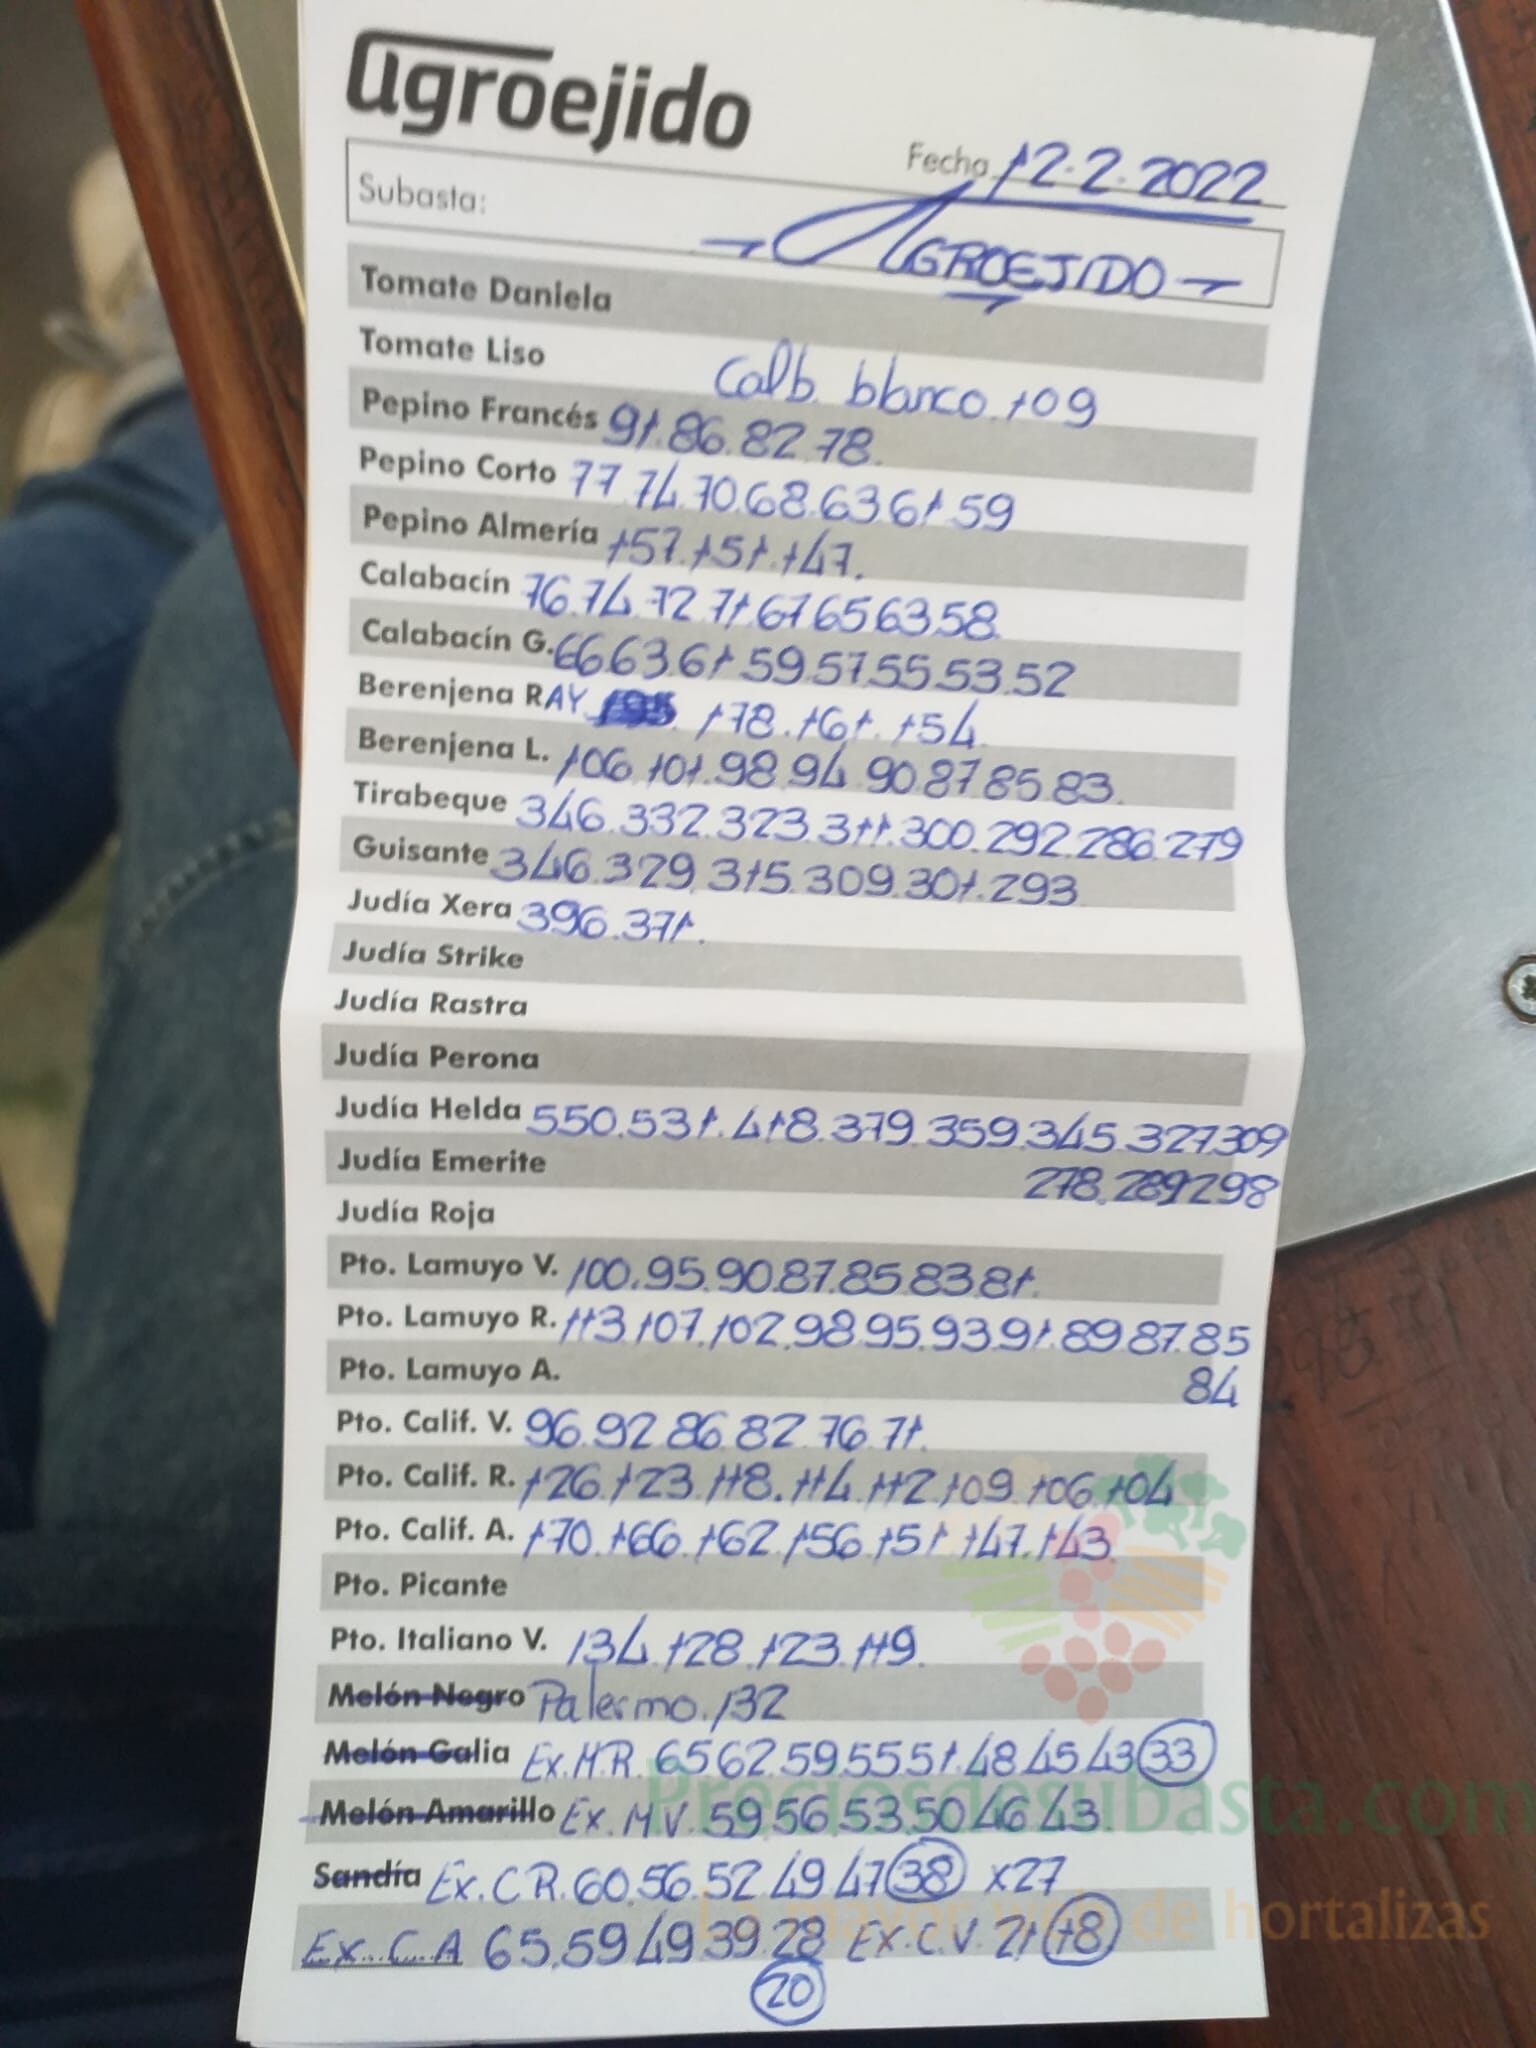 agroejido
Fecha 12.2.2022
Subasta: → AGROEJIDO →
Tomate Daniela
Tomate Liso Calb. blanco. 109
Pepino Francés 91.86.82.78.
Pepino Corto 77.74.70.68.63.61.59
Pepino Almería 157.151.147.
Calabacín 76.74.72.71.67.65.63.58.
Calabacín G. 66.63.61.59.57.55.53.52
Berenjena RAY 195. 178.161.154.
Berenjena L. 106.101.98.94.90.87.85.83.
Tirabeque 346.332.323.311.300.292.286.279
Guisante 346.329.315.309.301.293
Judía Xera 396.371.
Judía Strike
Judía Rastra
Judía Perona
Judía Helda 550.531.418.379.359.345.327.309
Judía Emerite 278.289.298
Judía Roja
Pto. Lamuyo V. 100.95.90.87.85.83.81.
Pto. Lamuyo R. 113.107.102.98.95.93.91.89.87.85
Pto. Lamuyo A. 84
Pto. Calif. V. 96.92.86.82.76.71.
Pto. Calif. R. 126.123.118.114.112.109.106.104
Pto. Calif. A. 170.166.162.156.151.147.143.
Pto. Picante
Pto. Italiano V. 134.128.123.119.
Melón Negro Palermo. 132
Melón Galia Ex.M.R. 65.62.59.55.51.48.45.43 33
Melón Amarillo Ex.M.V. 59.56.53.50.46.43.
Preciosdesubasta.com
Sandía Ex.C.R. 60.56.52.49.47 38 x27
La mayor web de hortalizas
Ex.C.A 65.59.49.39.28 Ex.C.V. 21 18
20